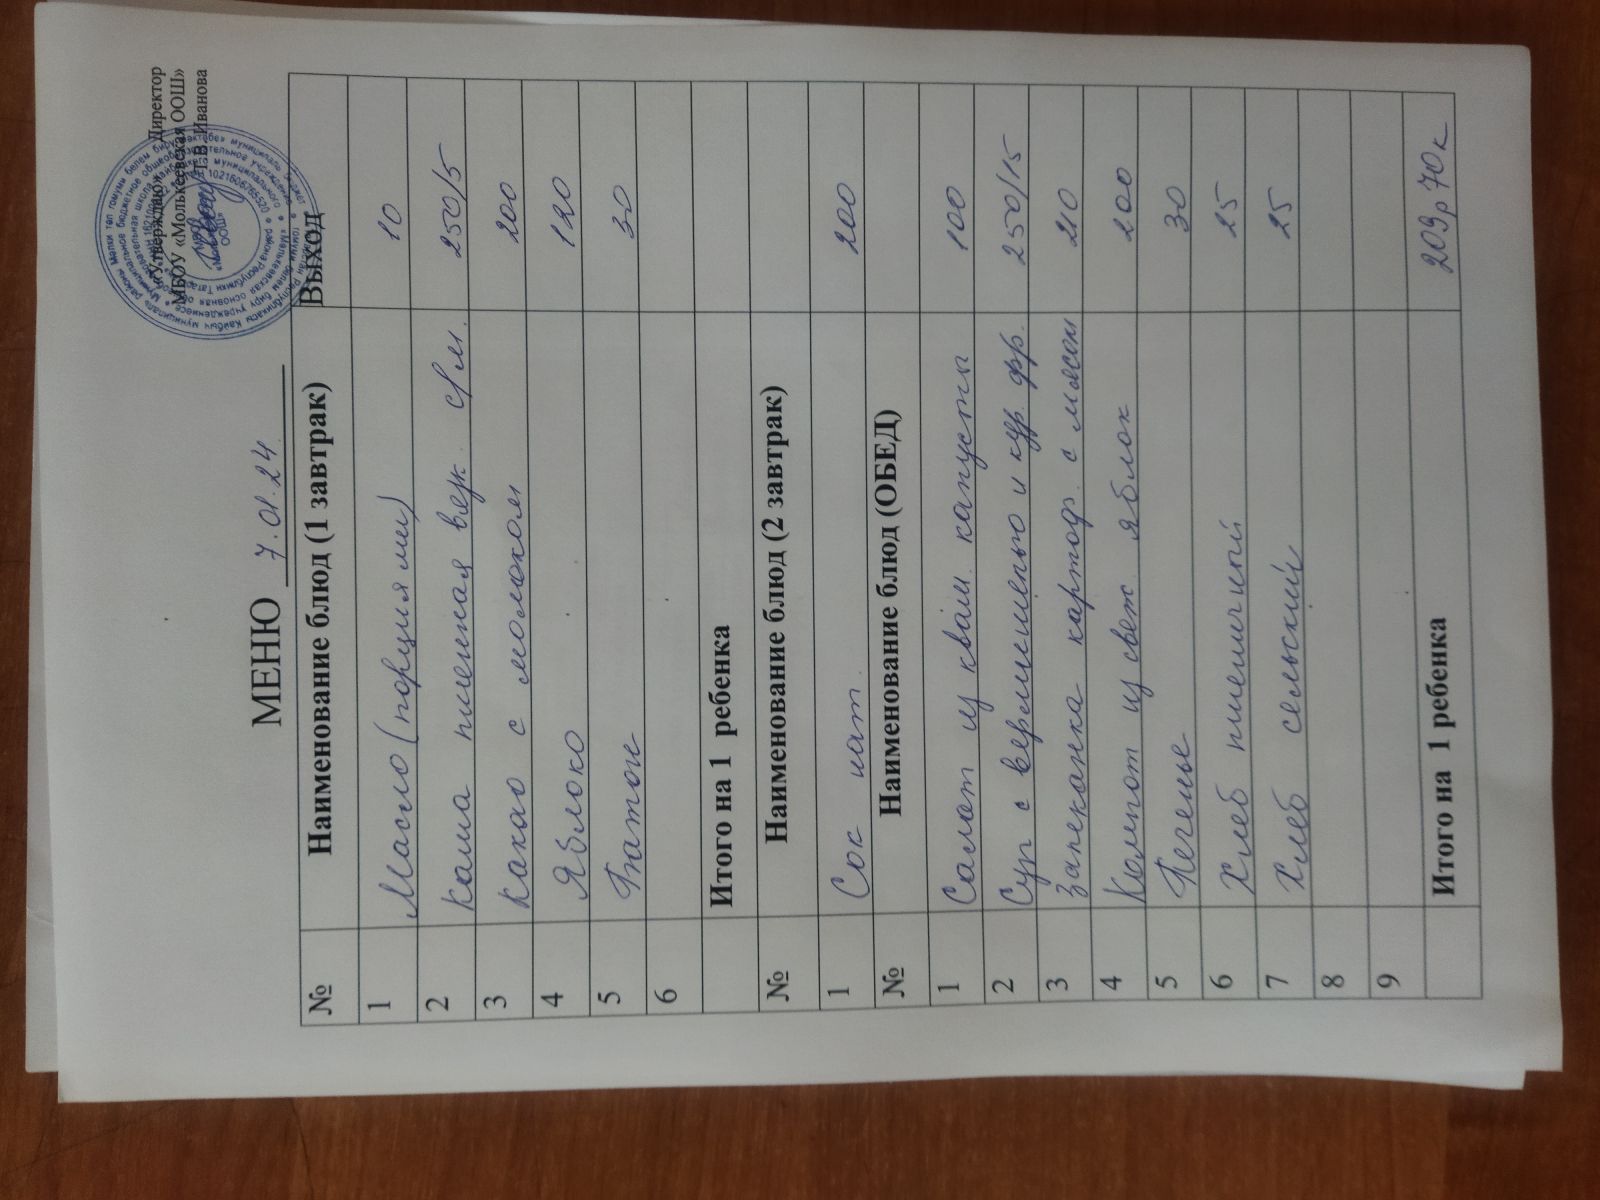 «Утверждаю» Директор
МБОУ «Молькеевская ООШ»
Т.В. Иванова
МЕНЮ 7.01.24
№ Наименование блюд (1 завтрак) Выход
1 Масло (порциями) 10
2 Каша пшенная вязк. с/м. 250/5
3 Какао с молоком 200
4 Яблоко 120
5 Батон 30
6
Итого на 1 ребенка
№ Наименование блюд (2 завтрак)
1 Сок нат. 200
№ Наименование блюд (ОБЕД)
1 Салат из кваш. капусты 100
2 Суп с вермишелью и кур. фр. 250/15
3 Запеканка картоф. с мясом 210
4 Компот из свеж. яблок 200
5 Печенье 30
6 Хлеб пшеничный 25
7 Хлеб сельский 25
8
9
Итого на 1 ребенка 209р 70к